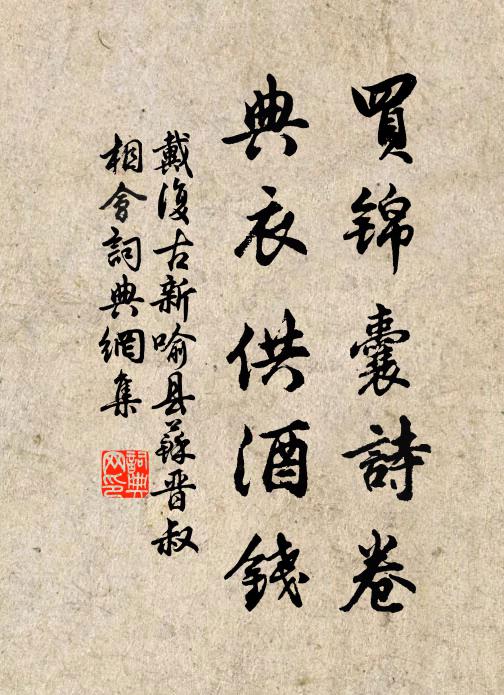 買錦囊詩卷
典衣供酒錢
戴復古新喻县蘇晋叔
相會詞典網集
詞典网印